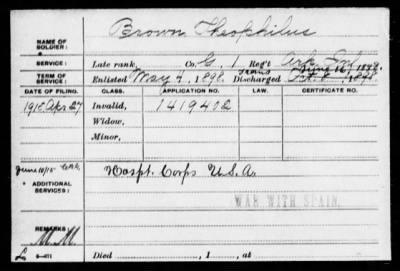 Brown Theophilus
NAME OF SOLDIER:
SERVICE: Late rank, Co. G, 1 Reg't Ark Inf
TERM OF SERVICE: Enlisted May 4, 1898. Trans June 16, 1898.
Discharged Oct. , 1898
DATE OF FILING. CLASS. APPLICATION NO. LAW. CERTIFICATE NO.
1915 Apr 27 Invalid, 1419402
Widow,
Minor,
June 10/15
* ADDITIONAL SERVICES: Hospt. Corps U.S.A.
WAR WITH SPAIN.
REMARKS:
M.M.
Died , 1 , at